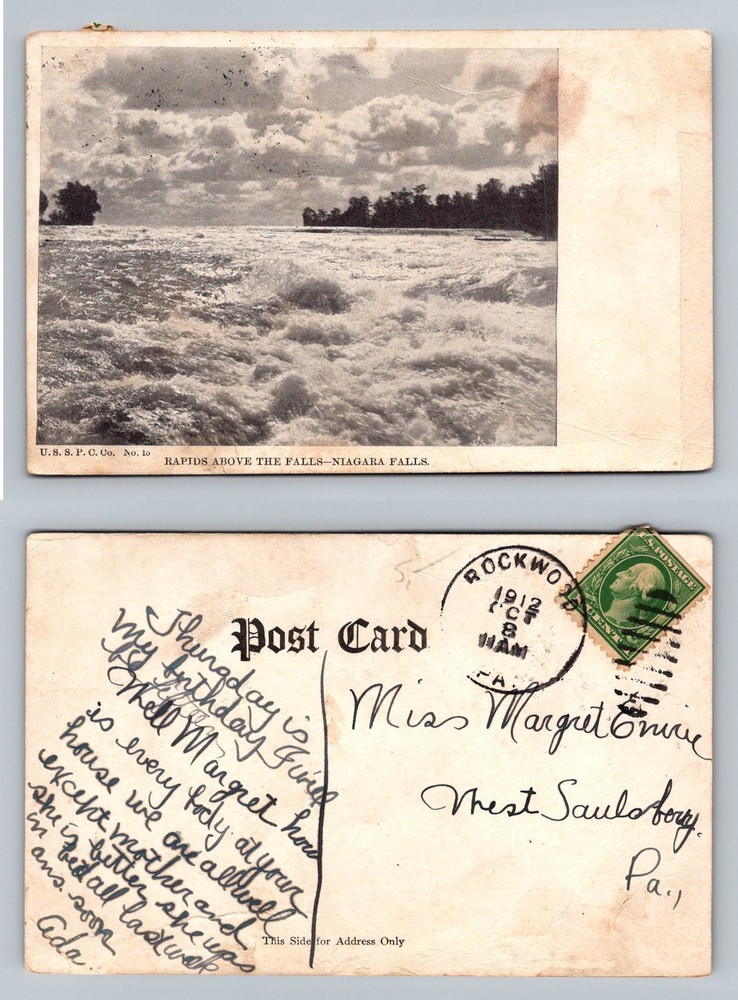 U. S. S. P. C. Co. No. 10
RAPIDS ABOVE THE FALLS—NIAGARA FALLS.
Post Card
ROCKWOOD
1912
OCT
8
11 AM
PA.
POSTAGE
Miss Margret
West Saulsberry.
Pa.,
Thursday is
my birthday
Well Margret how
is every body at your
house we are all well
except mother and
she is better she was
in bed all last week
ans. soon
Ada.
This Side for Address Only